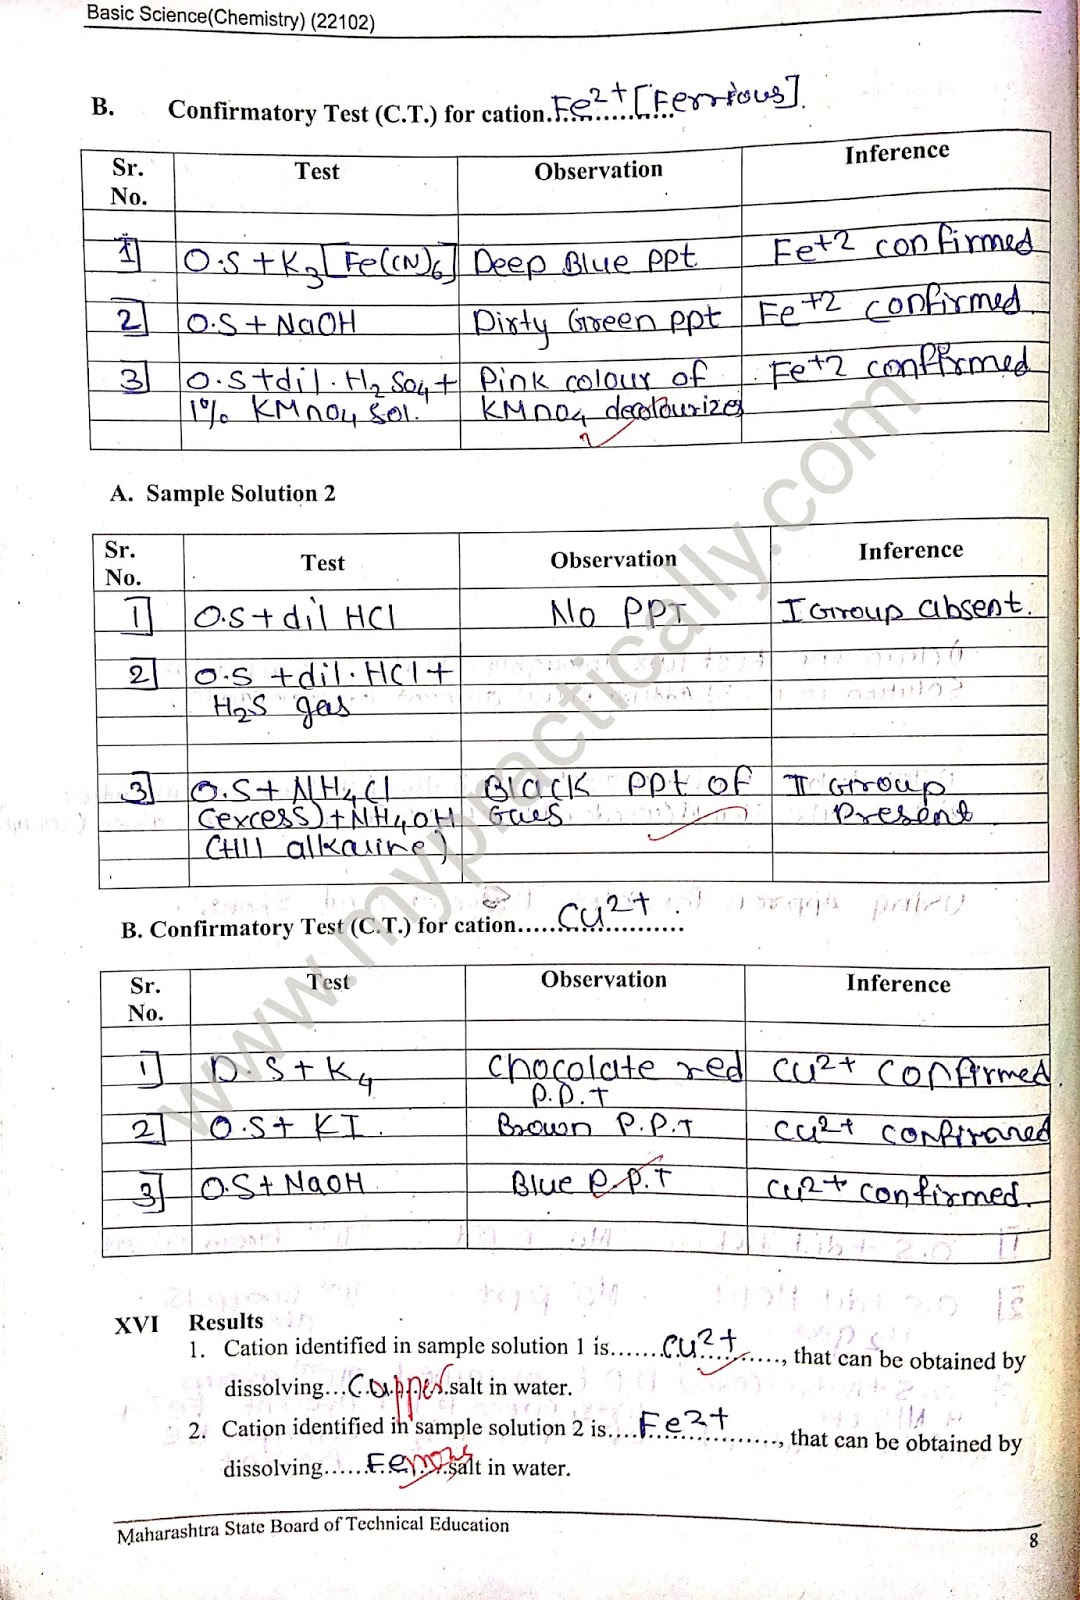 Basic Science(Chemistry) (22102)
B. Confirmatory Test (C.T.) for cation..Fe2+ [Ferrious].
Sr. No. Test Observation Inference
1] O.S + K3[Fe(CN)6] Deep Blue ppt Fe+2 confirmed
2] O.S + NaOH Dirty Green ppt Fe+2 confirmed
3] O.S + dil. H2SO4 + Pink colour of Fe+2 confirmed
1% KMnO4 sol. KMnO4 decolourizes
A. Sample Solution 2
Sr. No. Test Observation Inference
1] O.S + dil HCl No PPT I Group absent.
2] O.S + dil. HCl +
H2S gas
3] O.S + NH4Cl Black PPt of II Group
(excess) + NH4OH Present
(till alkaline)
B. Confirmatory Test (C.T.) for cation......Cu2+.
Sr. No. Test Observation Inference
1] O.S + K4 Chocolate red Cu2+ confirmed.
P.P.T
2] O.S + KI. Brown P.P.T Cu2+ confirmed
3] O.S + NaOH Blue P.P.T Cu2+ confirmed.
XVI Results
1. Cation identified in sample solution 1 is.......Cu2+......, that can be obtained by
dissolving...Copper.salt in water.
2. Cation identified in sample solution 2 is....Fe2+......, that can be obtained by
dissolving......Ferrous.salt in water.
Maharashtra State Board of Technical Education
8
www.mypractically.com